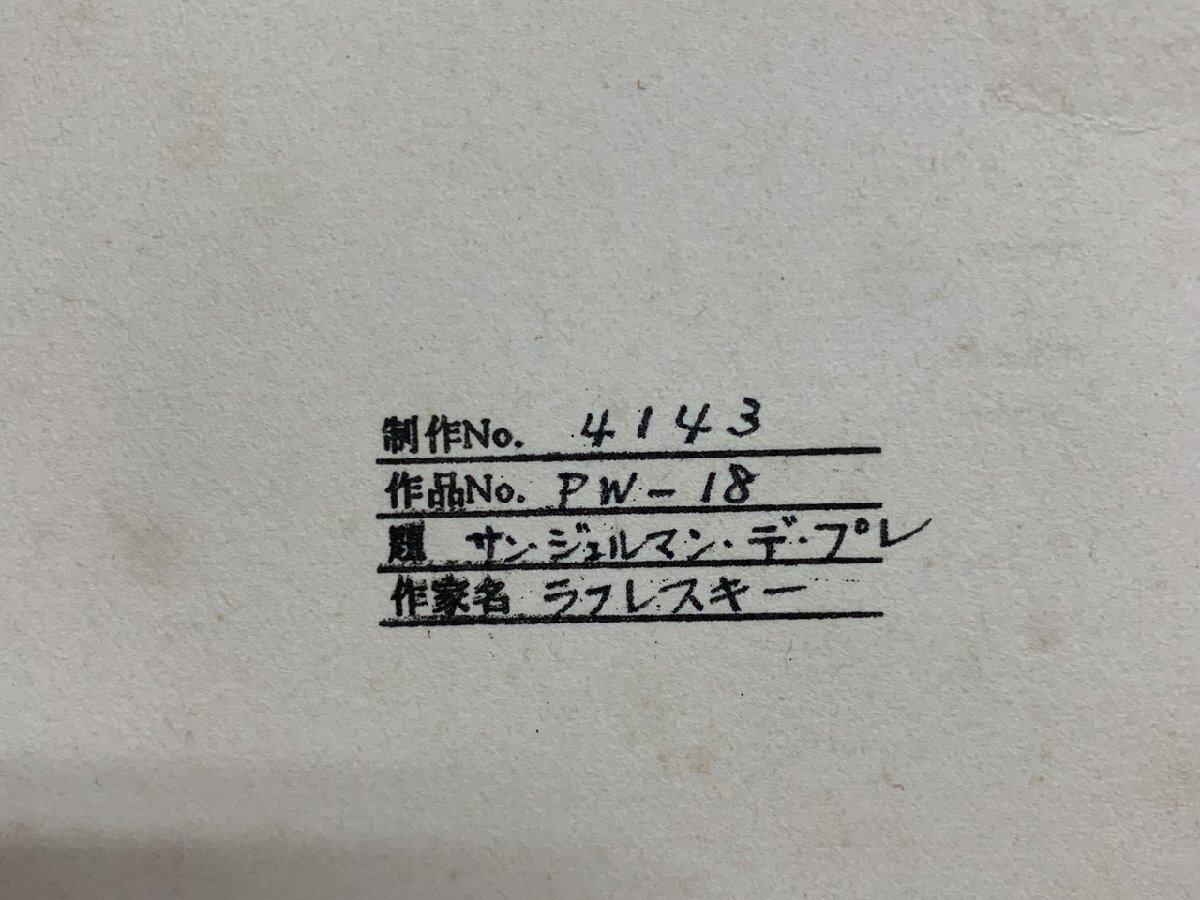 制作No. 4143
作品No. PW-18
題 サン・ジェルマン・デ・プレ
作家名 ラフレスキー